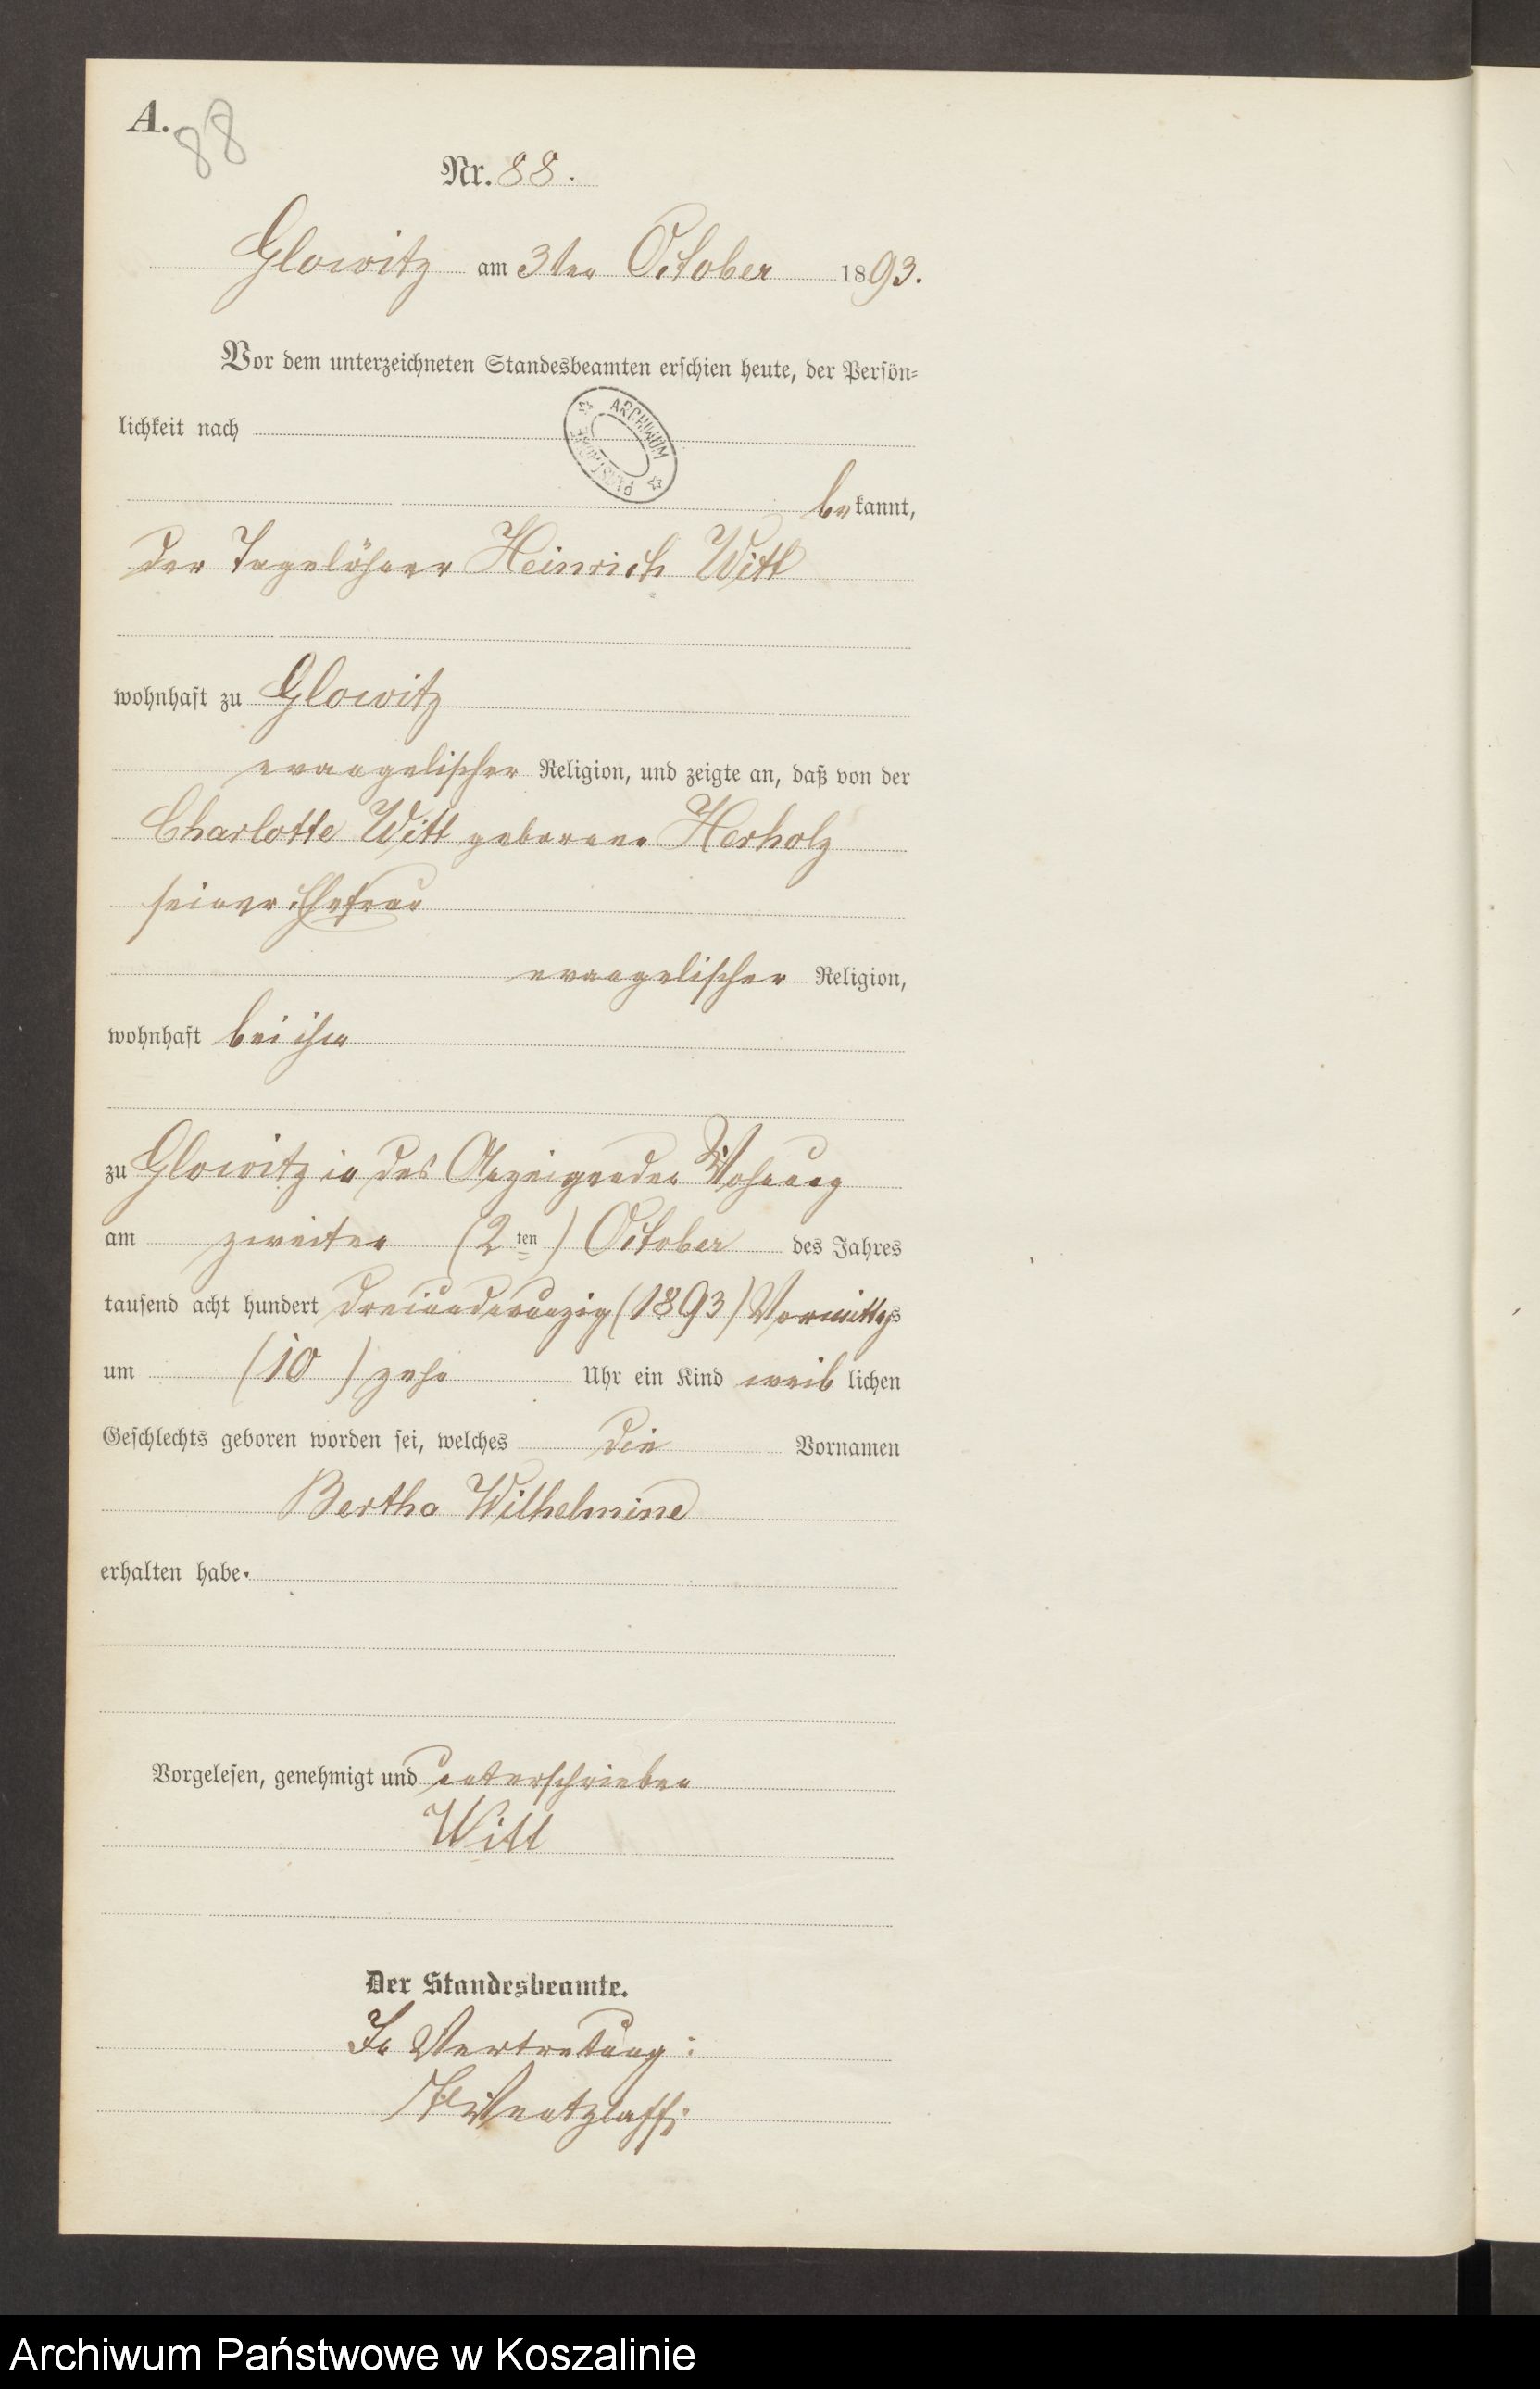 A.
88
Nr. 88.
Glowitz am 3ten October 1893.
Vor dem unterzeichneten Standesbeamten erschien heute, der Persön-
lichkeit nach
ARCHIWUM PAŃSTWOWE
bekannt,
der Tagelöhner Heinrich Witt
wohnhaft zu Glowitz
evangelischer Religion, und zeigte an, daß von der
Charlotte Witt geborene Herholz
seiner Ehefrau
evangelischer Religion,
wohnhaft bei ihm
zu Glowitz in des Anzeigenden Wohnung
am zweiten (2ten) October des Jahres
tausend acht hundert dreiundneunzig (1893) Vormittags
um (10) zehn Uhr ein Kind weiblichen
Geschlechts geboren worden sei, welches die Vornamen
Bertha Wilhelmine
erhalten habe.
Vorgelesen, genehmigt und unterschrieben
Witt
Der Standesbeamte.
In Vertretung:
Wentzlaff
Archiwum Państwowe w Koszalinie